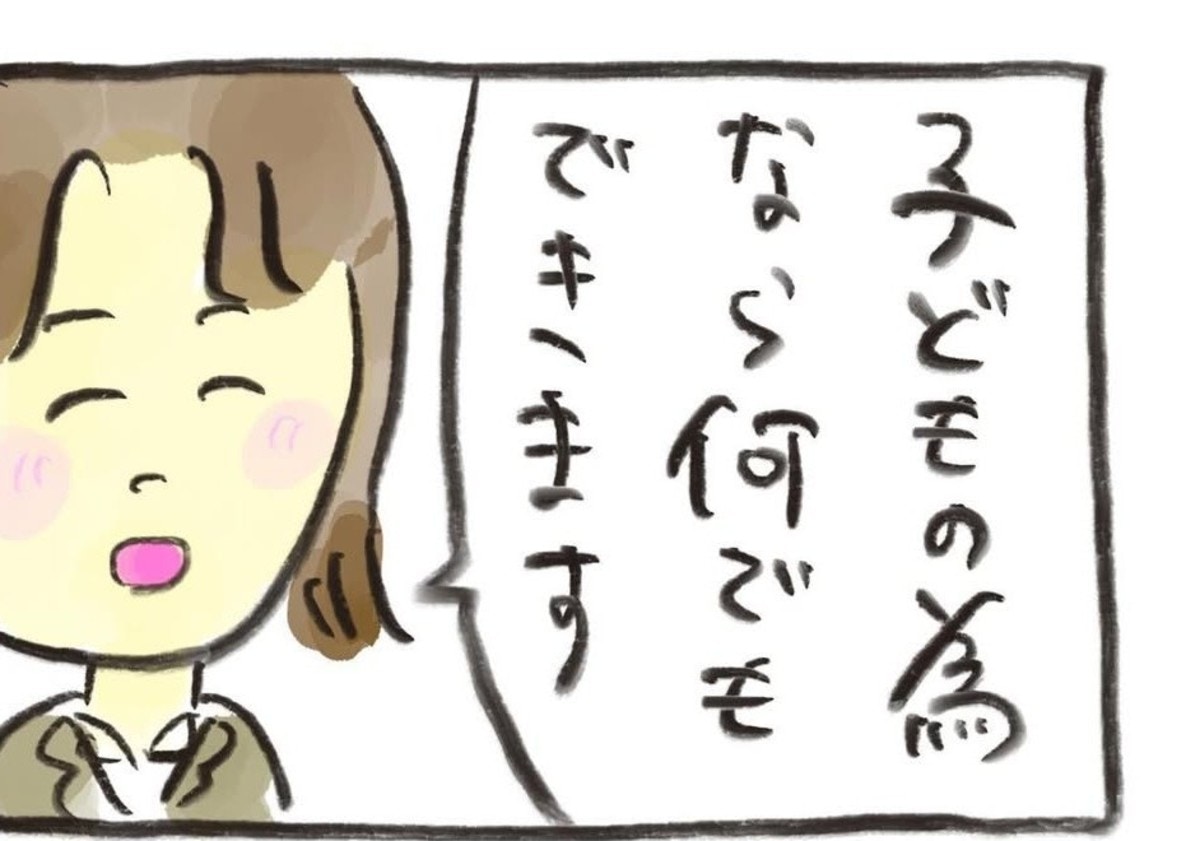 子どもの為
なら何でも
できます